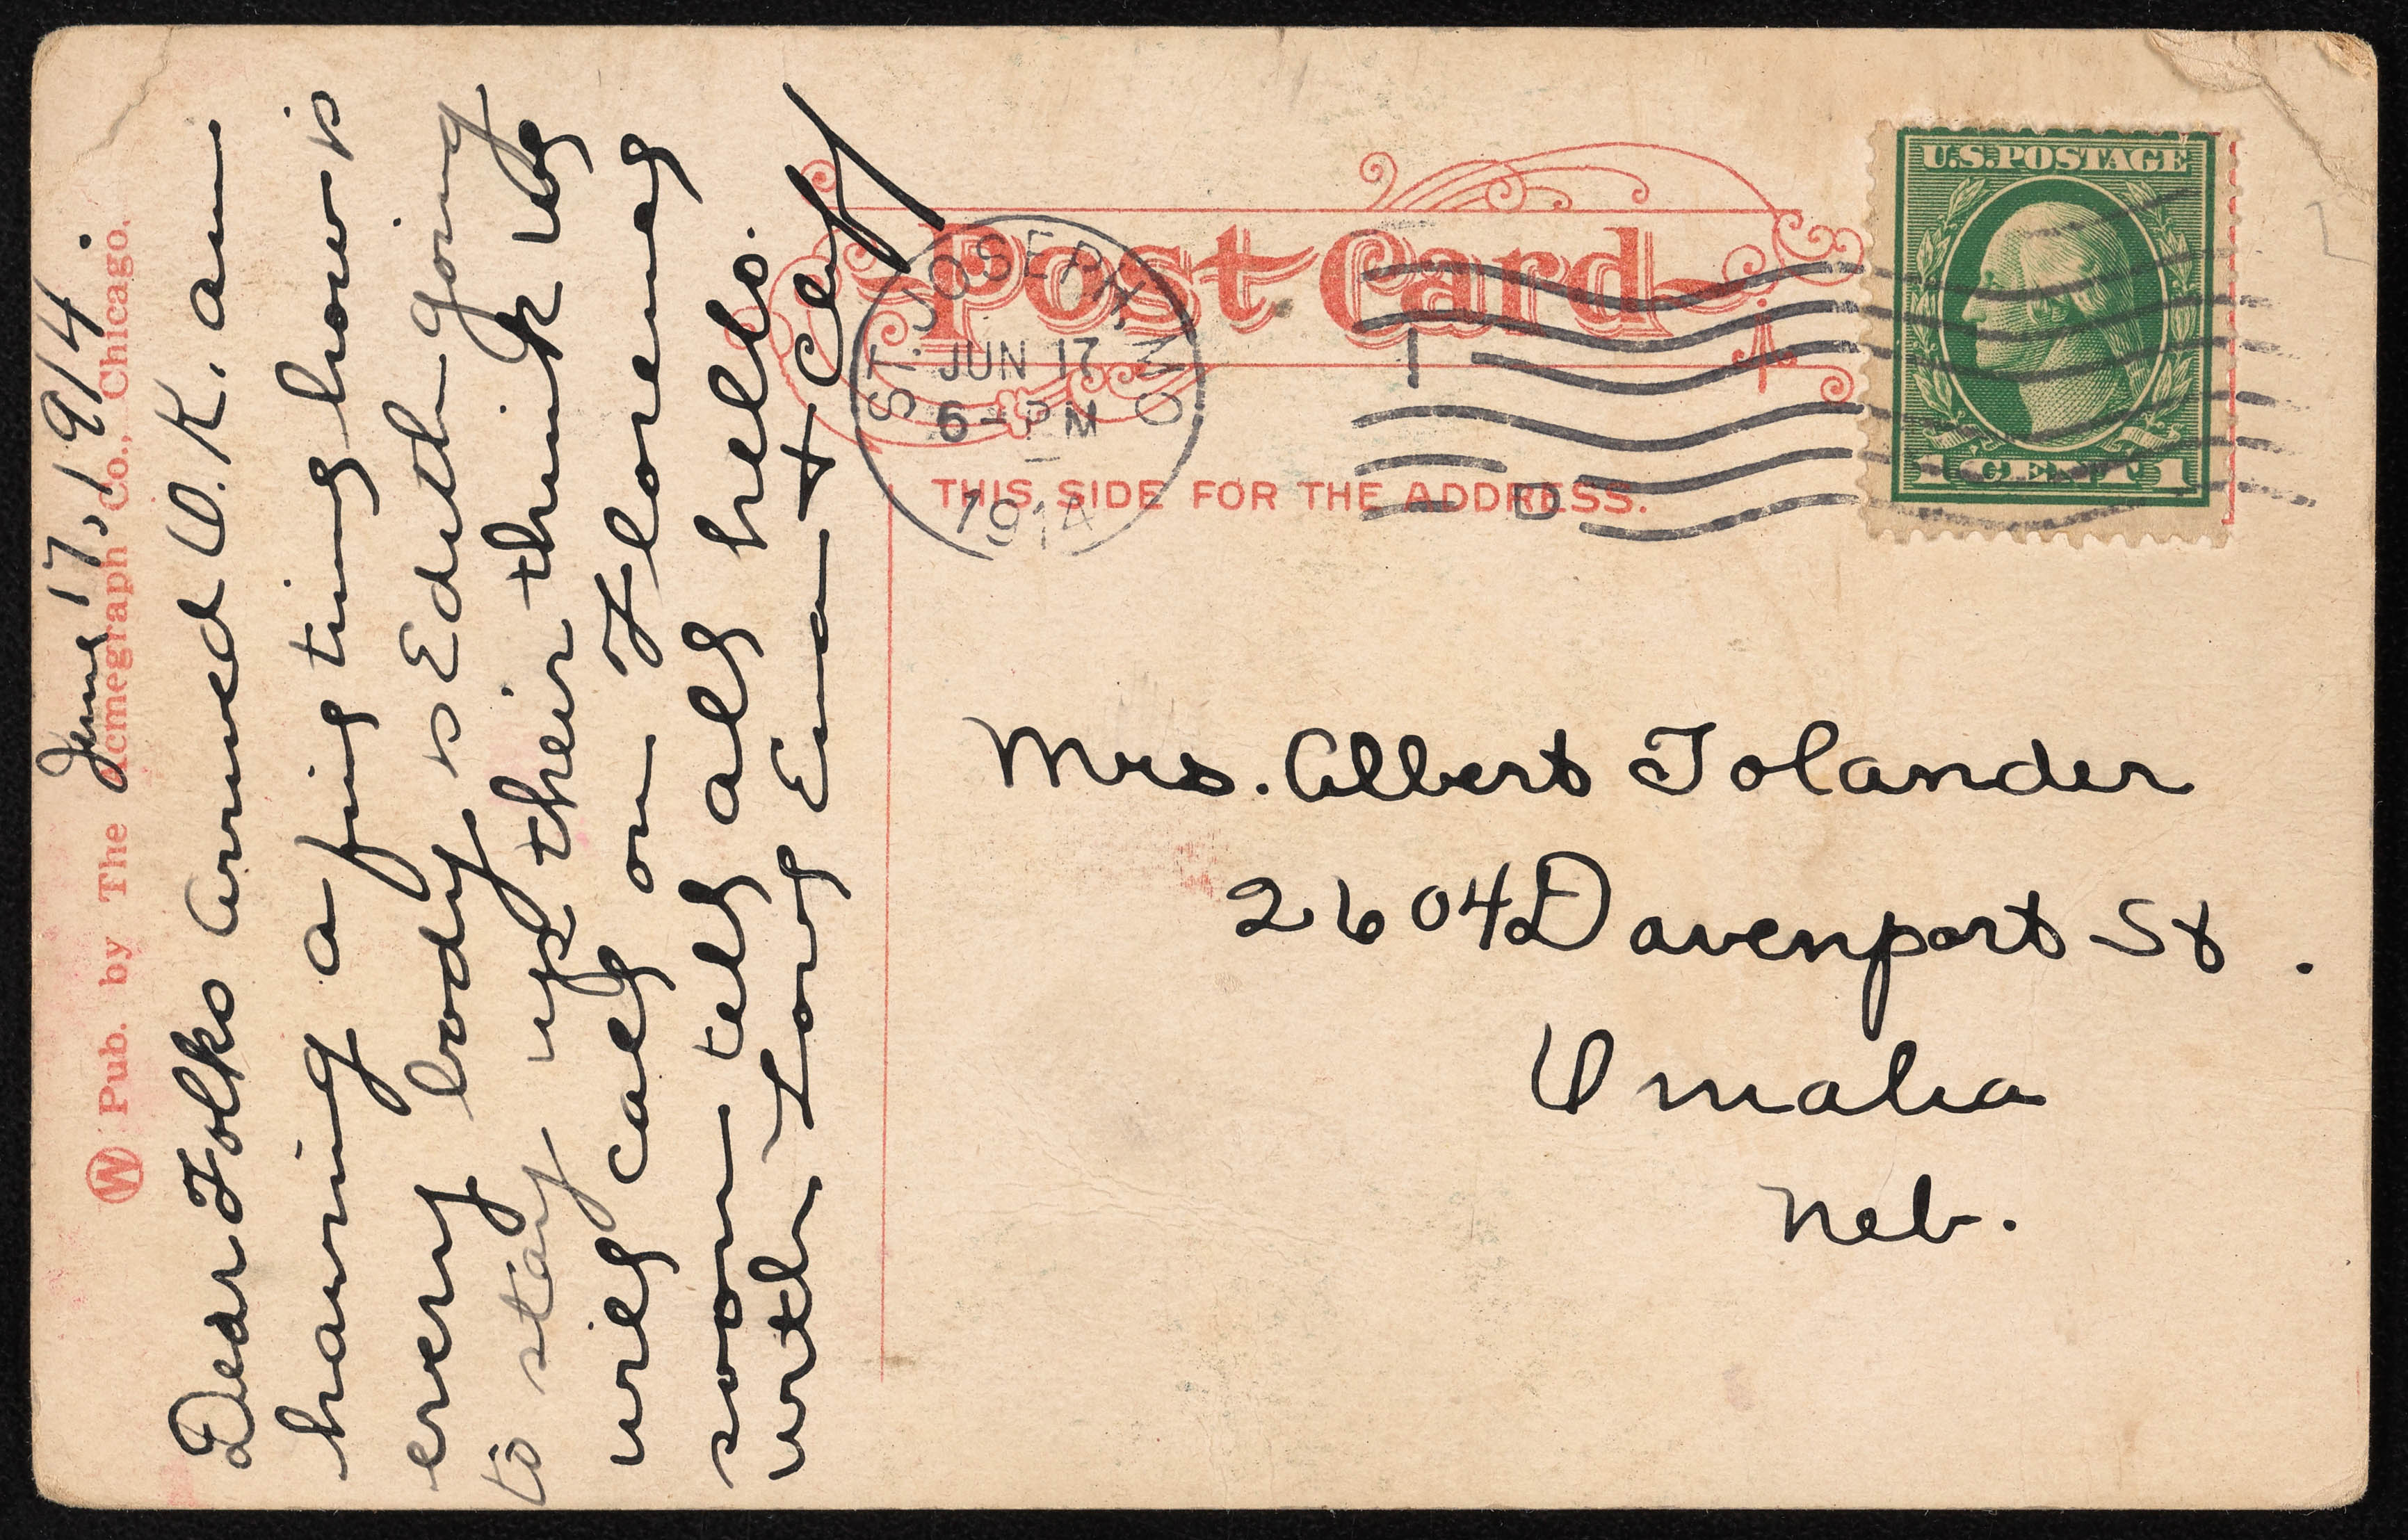 June 17, 1914.
Dear Folks Arrived O.K. am
having a fine time how is
every body is Edith going
to stay up their think we
will call on Florence
soon tell all hello.
with Love Ema + Cey
W Pub. by The Acmegraph Co., Chicago.
Post Card
THIS SIDE FOR THE ADDRESS.
ST. JOSEPH, MO.
JUN 17
6 - PM
1914
D
U.S. POSTAGE
1 CENT 1
Mrs. Albert Tolander
2604 Davenport St.
Omaha
Neb.